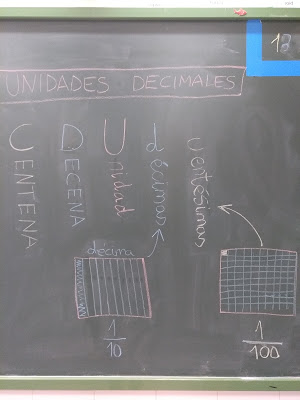 18
UNIDADES DECIMALES
CENTENA
DECENA
Unidad
décimas
centésimas
décima
1
10
1
100